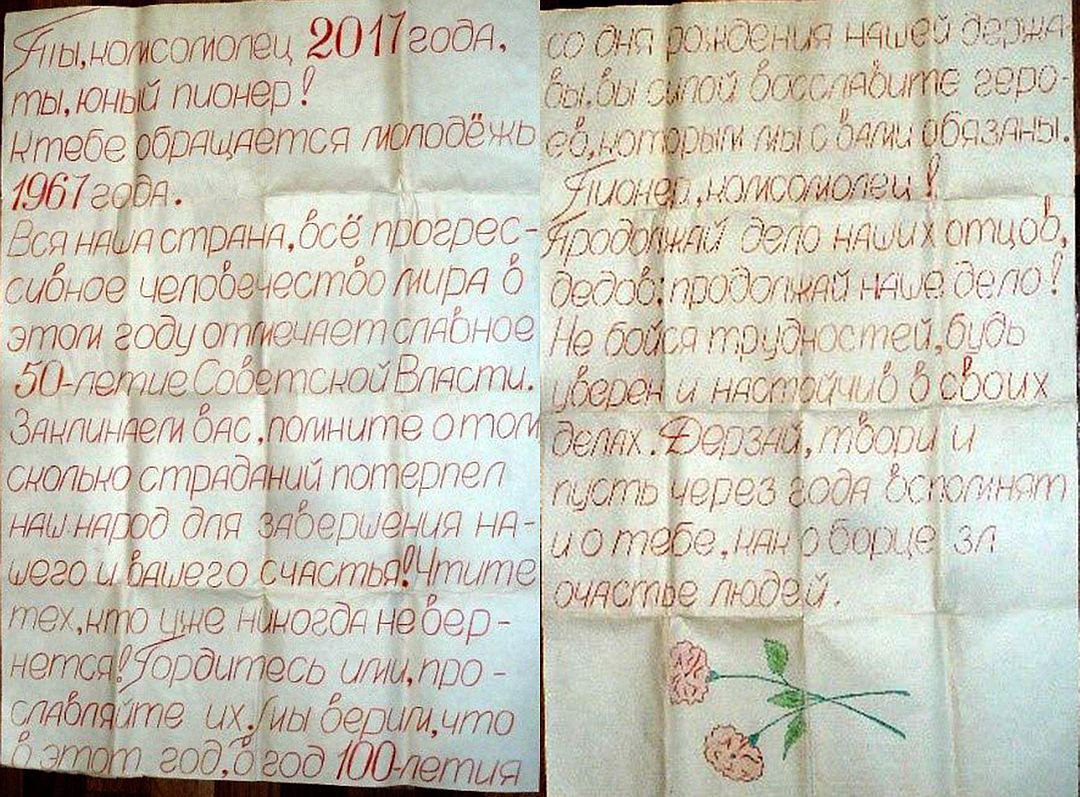 Ты, комсомолец 2017 года,
ты, юный пионер!
К тебе обращается молодёжь
1967 года.
Вся наша страна, всё прогрес-
сивное человечество мира в
этом году отмечает славное
50-летие Советской Власти.
Заклинаем вас, помните о том
сколько страданий потерпел
наш народ для завершения на-
шего и вашего счастья! Чтите
тех, кто уже никогда не вер-
нется! Гордитесь ими, про-
славляйте их. Мы верим, что
в этот год, в год 100-летия
со дня рождения нашей держа-
вы, вы силой восславите геро-
ев, которым мы с вами обязаны.
Пионер, комсомолец!
Продолжай дело наших отцов,
дедов; продолжай наше дело!
Не бойся трудностей, будь
уверен и настойчив в своих
делах. Дерзай, твори и
пусть через года вспомнят
и о тебе, как о борце за
счастье людей.